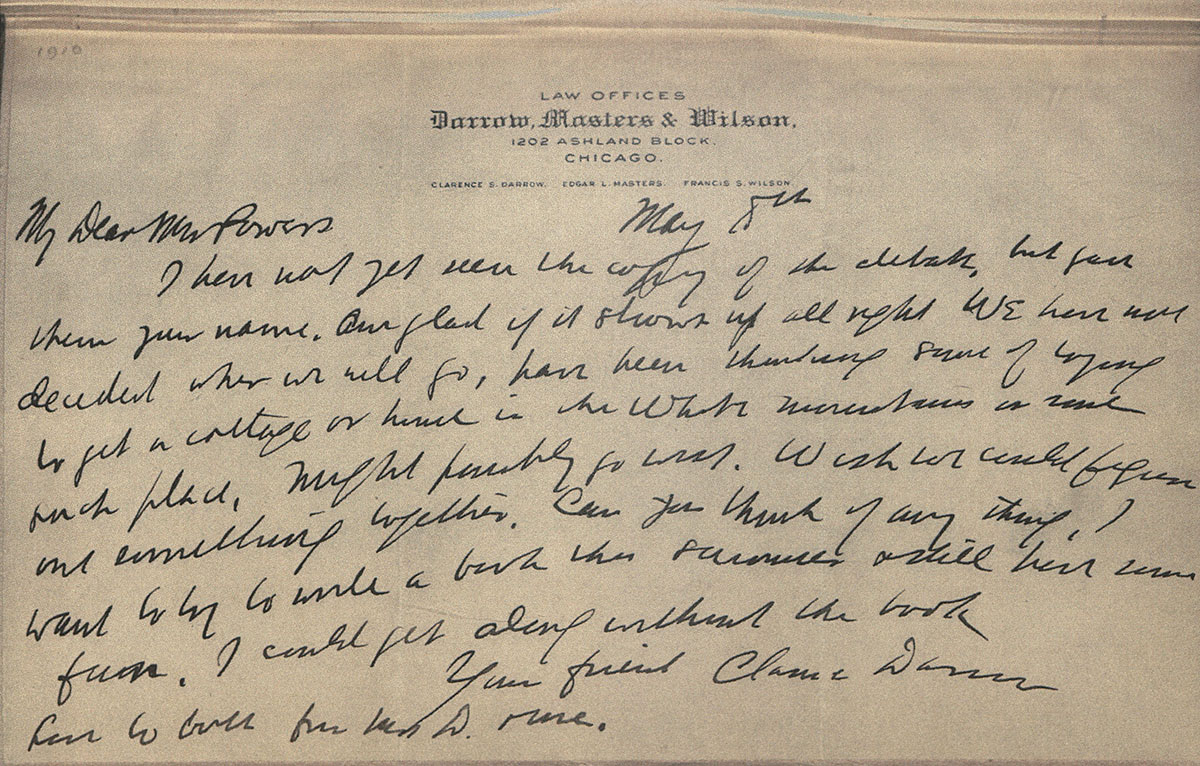 1910
LAW OFFICES
Darrow, Masters & Wilson,
1202 ASHLAND BLOCK,
CHICAGO.
CLARENCE S. DARROW. EDGAR L. MASTERS. FRANCIS S. WILSON.
May 8th
My Dear Mr Powers
I have not yet seen the copy of the debate, but gave
them your name. Am glad if it shows up all right WE have not
decided where we will go, have been thinking some of trying
to get a cottage or hunt in the White mountains or some
such place, Might possibly go west. Wish we could figure
out something together. Can you think of any thing, I
want to try to write a book this summer & still have some
fun. I could get along without the book
Your friend Clarence Darrow
Love to both from Mrs D. & me.